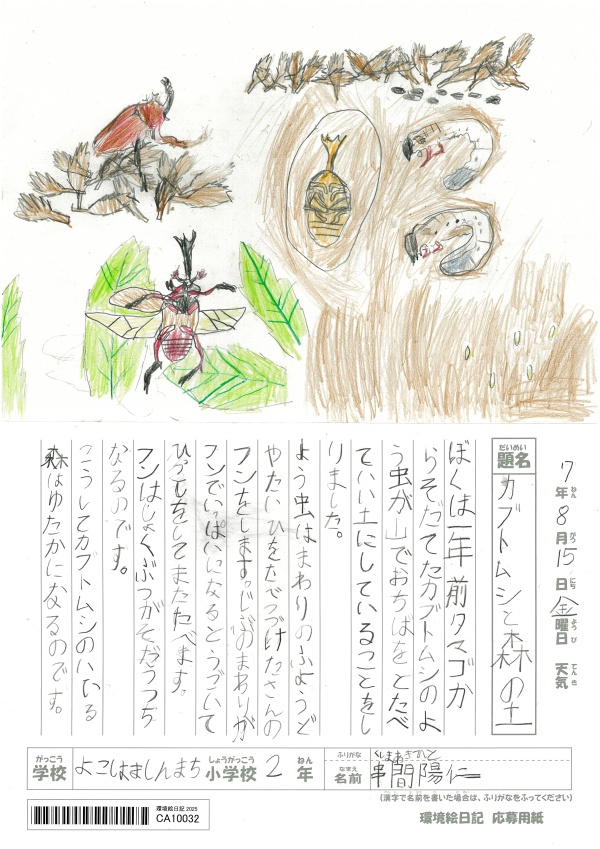 7年ねん8月がつ15日にち金曜日ようび 天気てんき
だいめい
題名
カブトムシと森の土
ぼくは一年前タマゴか
らそだてたカブトムシのよ
う虫が山でおちばをとたべ
ていい土にしていることをし
りました。
よう虫はまわりのふようど
やたいひをたべつづけたさんの
フンをします。じぶんのまわりが
フンでいっぱいになるとうごいて
ひっこしをしてまたたべます。
フンはしょくぶつがそだつつち
なるのです。
こうしてカブトムシのいる
森はゆたかになるのです。
がっこう
学校
よこはましんまち
しょうがっこう
小学校
2
ねん
年
ふりがな
くしま
なまえ
名前
串間陽仁
(漢字で名前を書いた場合は、ふりがなをふってください)
環境絵日記 2025
CA10032
環境絵日記 応募用紙